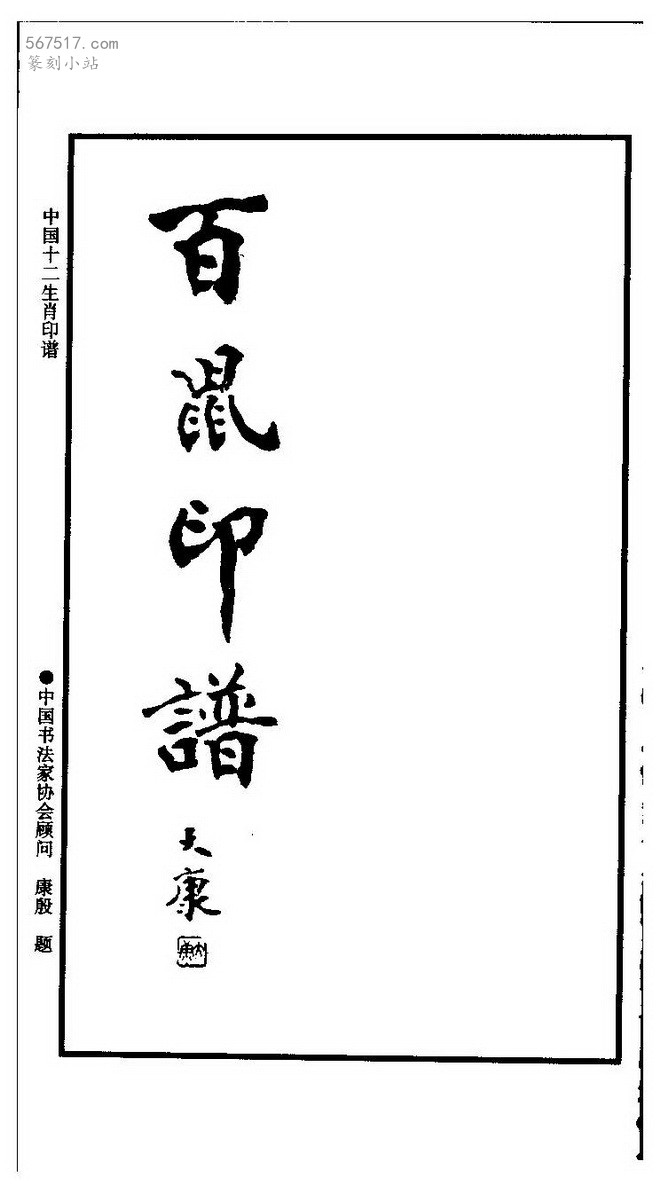 567517.com
篆刻小站
百鼠印譜
大康
中国十二生肖印谱
●中国书法家协会顾问 康殷 题